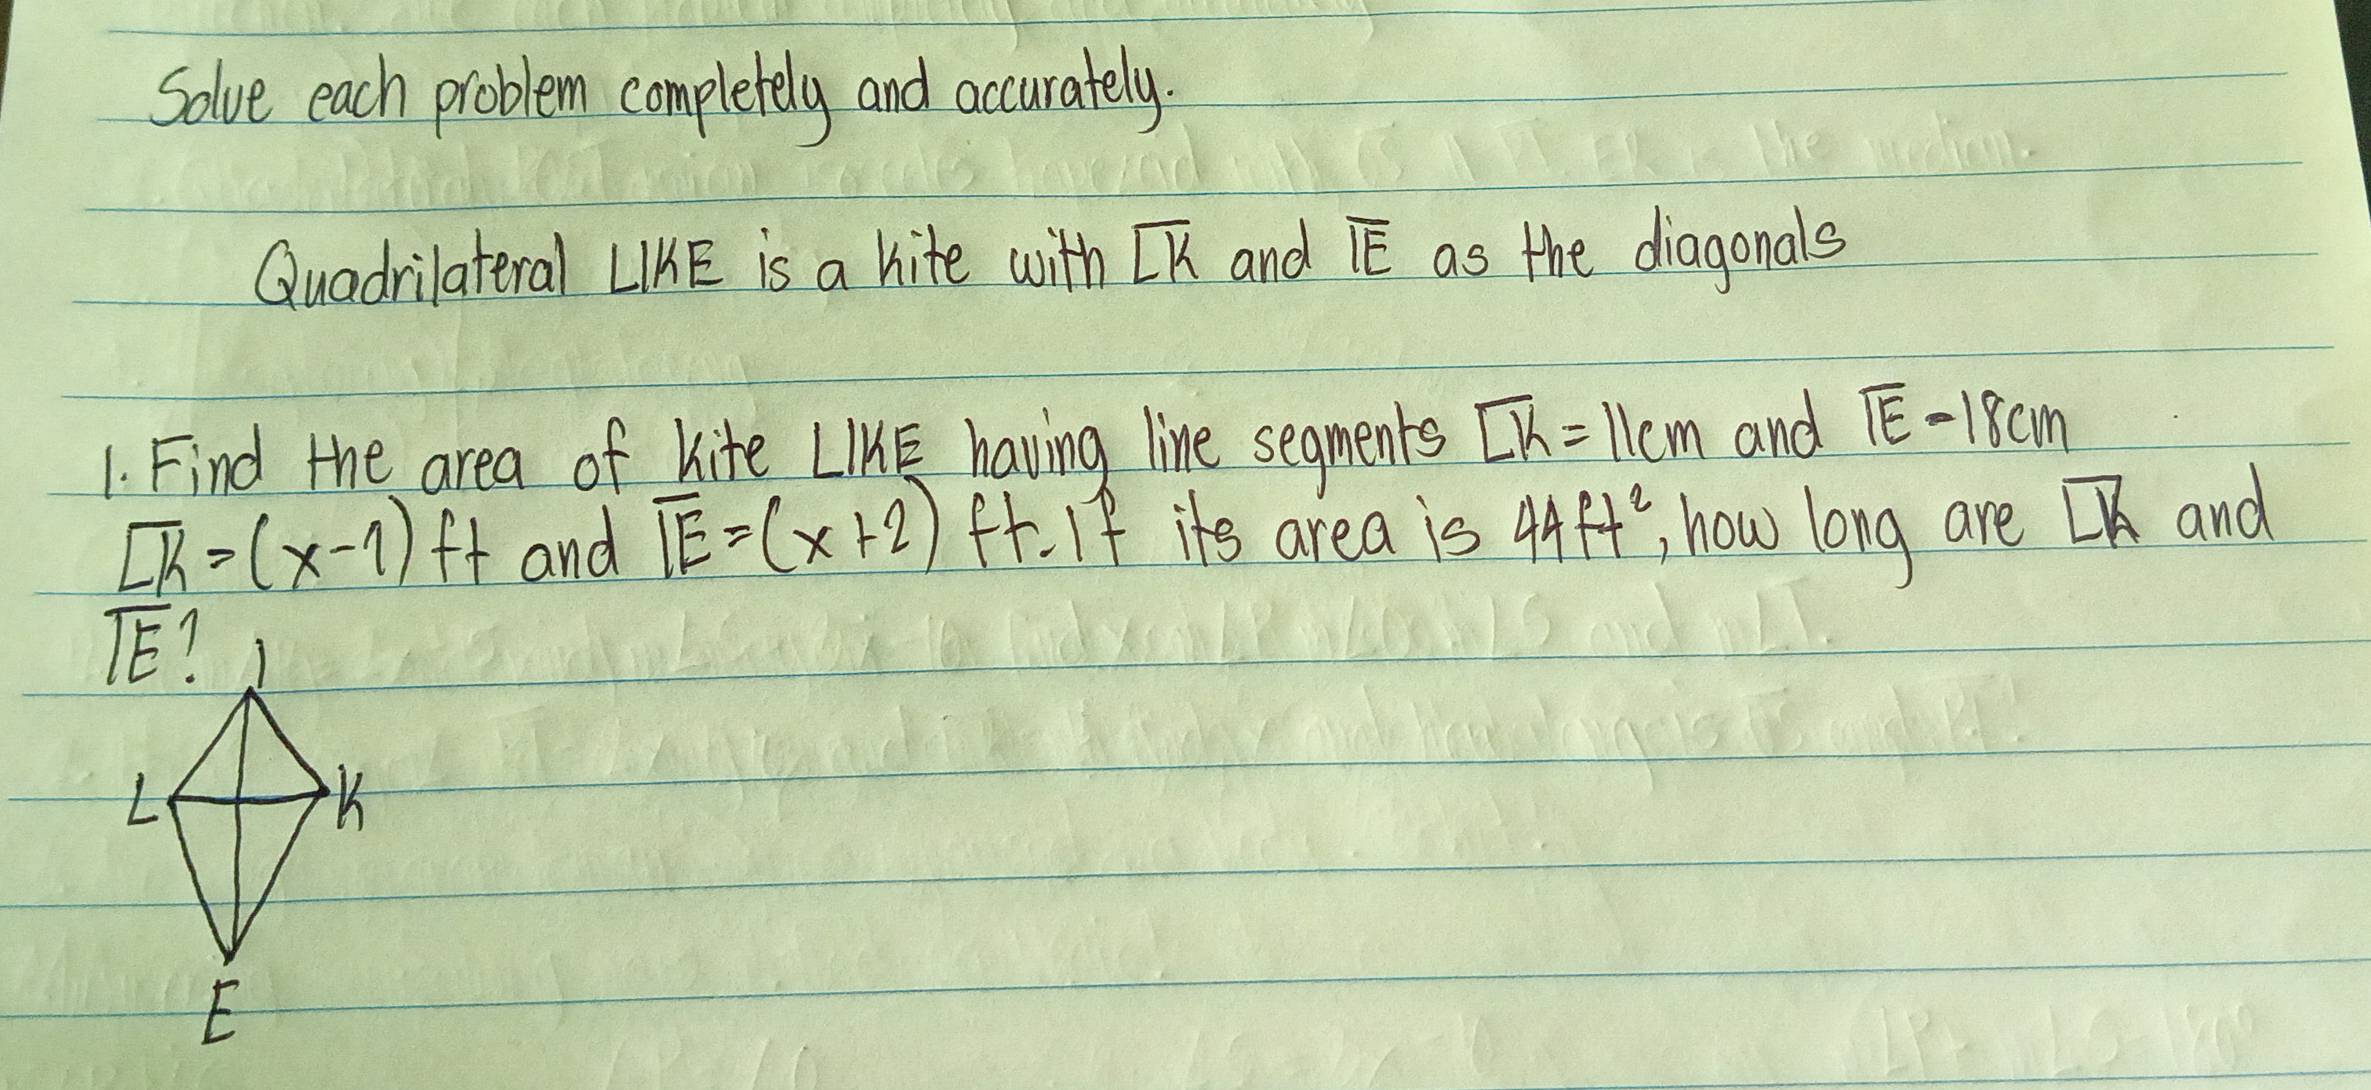 Solve each problem completely and accurately.
Quadrilateral LIKE is a kite with L̅K̅ and I̅E̅ as the diagonals
1. Find the area of kite LIKE having line segments L̅K̅ = 11cm and I̅E̅ - 18cm
L̅K̅ = (x-1) ft and I̅E̅ = (x+2) ft. If its area is 44ft², how long are L̅K̅ and
I̅E̅?
I
L K
E